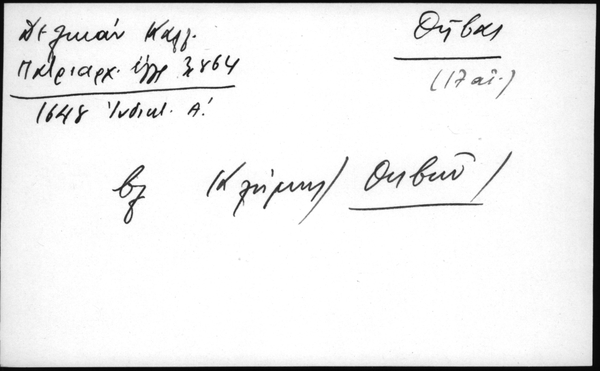 Δελικάν Καλλ.
Πατριαρχ. ἔγγρ 3864
1648 Ἰνδικτ. Α΄.
Θήβαι
(17 αἰ.)
βλ Κλήμης / Θηβῶν /